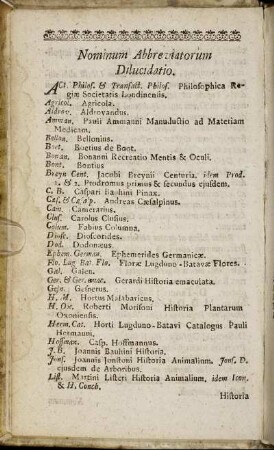 Nominum Abbreviatorum
Dilucidatio.
Act. Philos. & Transact. Philos. Philosophica Re-
giæ Societatis Londinensis.
Agricol. Agricola.
Aldrov. Aldrovandus.
Amman. Pauli Ammanni Manuductio ad Materiam
Medicam.
Bellon. Bellonius.
Boet. Boetius de Boot.
Bonan. Bonanni Recreatio Mentis & Oculi.
Bont. Bontius
Breyn Cent. Jacobi Breynii Centuria. idem Prod.
1. & 2. Prodromus primus & secundus ejusdem.
C. B. Caspari Bauhini Pinax.
Cæs. & Cæsalp. Andreas Cæsalpinus.
Cam. Camerarius.
Clus. Carolus Clusius.
Colum. Fabius Columna.
Diosc. Dioscorides.
Dod. Dodonæus.
Ephem. German. Ephemerides Germanicæ.
Flo. Lug. Bat. Flo. Floræ Lugduno-Batavæ Flores.
Gal. Galen.
Ger. & Ger. emac. Gerardi Historia emaculata.
Gesn. Gesnerus.
H. M. Hortus Malabaricus.
H. Ox. Roberti Morisoni Historia Plantarum
Oxoniensis.
Herm. Cat. Horti Lugduno-Batavi Catalogus Pauli
Hermanni.
Hoffman. Casp. Hoffmannus.
J. B. Joannis Bauhini Historia.
Jons. Joannis Jonstoni Historia Animalium. Jons. D.
ejusdem de Arboribus.
List. Martini Listeri Historia Animalium, idem Icon.
& H. Conch.
Historia